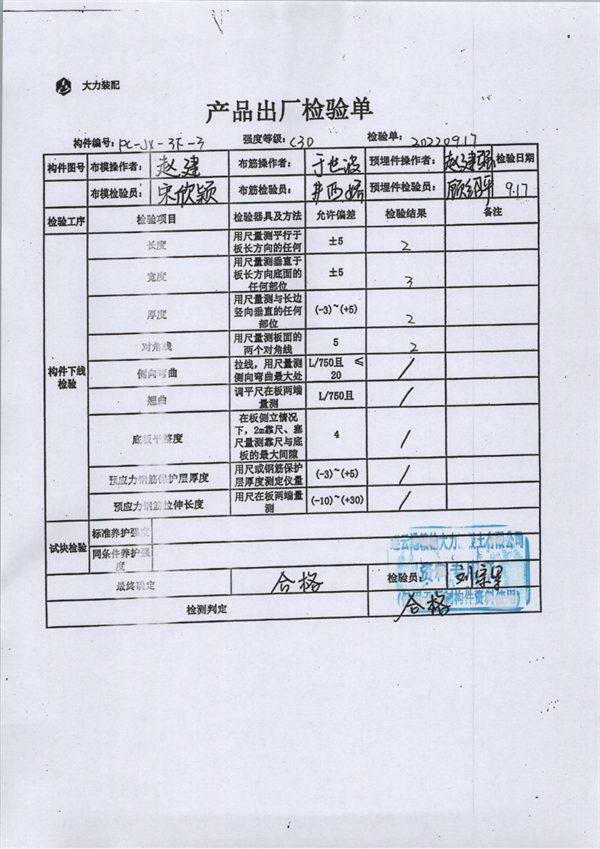 大力装配
产品出厂检验单
构件编号: PC-JX-3F-3 强度等级: C30 检验单: 20220917
构件图号 布模操作者: 赵建 布筋操作者: 于世波 预埋件操作者: 赵建强 检验日期
布模检验员: 宋欣颖 布筋检验员: 预埋件检验员: 9.17
检验工序 检验项目 检验器具及方法 允许偏差 检验结果 备注
构件下线检验
长度 用尺量测平行于板长方向的任何 ±5 2
宽度 用尺量测垂直于板长方向底面的任何部位 ±5 3
厚度 用尺量测与长边竖向垂直的任何部位 (-3)~(+5) 2
对角线 用尺量测板面的两个对角线 5 2
侧向弯曲 拉线，用尺量测侧向弯曲最大处 L/750且 ≤20 /
翘曲 调平尺在板两端量测 L/750且 /
底板平整度 在板侧立情况下，2m靠尺、塞尺量测靠尺与底板的最大间隙 4 /
预应力钢筋保护层厚度 用尺或钢筋保护层厚度测定仪量 (-3)~(+5) /
预应力钢筋拉伸长度 用尺在板两端量测 (-10)~(+30) /
试块检验 标准养护强度
同条件养护强度
最终确定 合格 检验员:
检测判定 合格